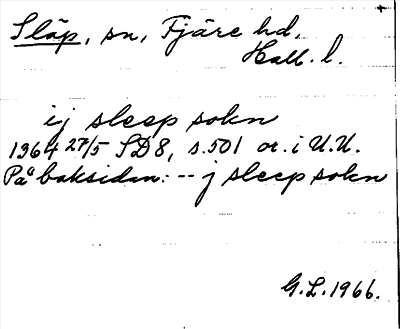 Släp, sn, Fjäre hd,
Hall. l.
ij sleep sokn
1364 27/5 SD8, s. 501 or. i U.U.
På baksidan: -- j sleep sokn
G.L. 1966.